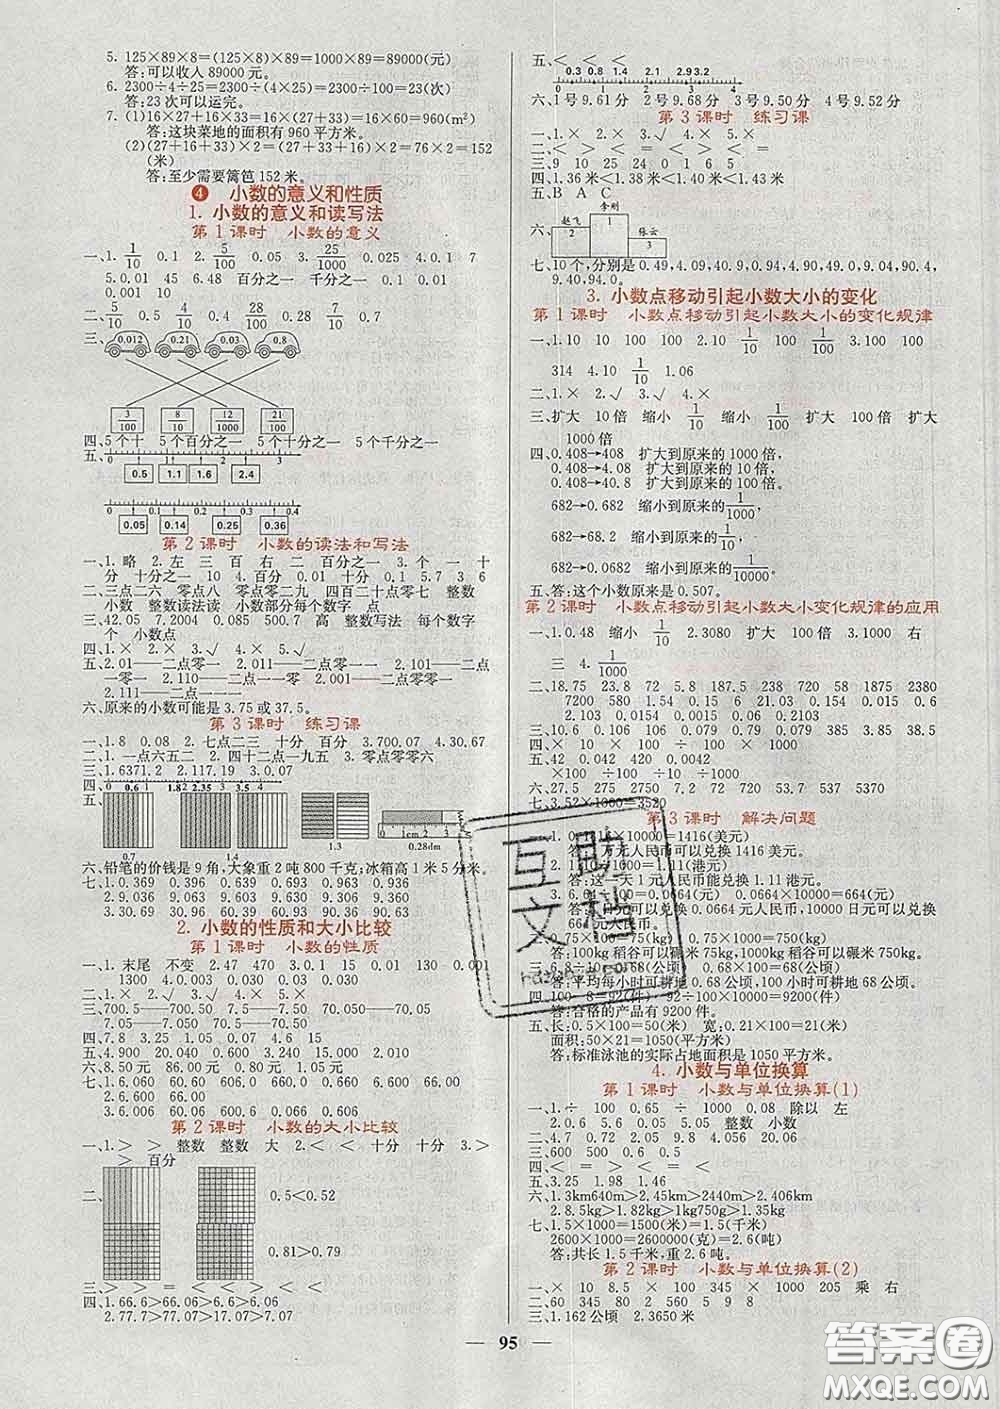 5. 125×89×8=(125×8)×89=1000×89=89000(元)
答:可以收入 89000 元。
6. 2300÷4÷25=2300÷(4×25)=2300÷100=23(次)
答:23 次可以运完。
7. (1)16×27+16×33=16×(27+33)=16×60=960(m²)
答:这块菜地的面积有 960 平方米。
(2)(27+33+16)×2=(27+33+16)×2=76×2=152
(米)
答:至少需要篱笆 152 米。
4 小数的意义和性质
1. 小数的意义和读写法
第 1 课时 小数的意义
一、1. 1/10 0.1 2. 5/100 0.05 3. 25/1000 0.025 4. 0.1 7
5. 0.01 45 6. 48 百分之一 千分之一 0.1 0.01
0.001 10
二、5/10 0.5 4/10 0.4 3/10 0.3 7/10 0.7
三、0.012 0.21 0.03 0.8
3/100 8/10 12/1000 21/100
四、5 个十 5 个百分之一 5 个十分之一 5 个千分之一
五、0 1 2 3
0.5 1.1 1.6 2.4
0 0.1 0.2 0.3 0.4
0.05 0.14 0.25 0.36
第 2 课时 小数的读法和写法
一、1. 略 2. 左 三 百 右 二 百分之一 3. 个 一 十
分 十分之一 10 4. 百分 0.01 十分 0.1 5. 7 3 6
二、三点二六 零点零二九 四百二十点零七 整数
小数 整数读法读 小数部分每个数字 点
三、42.05 7.2004 0.085 500.7 高 整数写法 每个数字
个 小数点
四、1. × 2. × 3. √ 4. × 5. √
五、2.01——二点零一 2.011——二点零一一 2.101——二点
一零一 2.110——二点一一零 2.001——二点零零一
2.111——二点一一一
六、原来的小数可能是 3.75 或 37.5。
第 3 课时 练习课
一、1. 8 0.08 2. 七点二三 十分 百分 3. 700.07 4. 30.67
二、1. 一点六五二 2. 四十二点一九五 3. 零点零零六
三、1. 6371.2 2. 117.19 3. 0.07
四、0 0.6 1 1.8 2 2.35 3 3.5 4
五、0.7 1.4 1.3 0.28dm
0 1cm 2 3
六、铅笔的价钱是 9 角,大象重 2 吨 800 千克;冰箱高 1 米 5 分米。
七、1. 0.369 0.396 0.639 0.693 0.936 0.963
2. 3.069 3.096 6.039 6.093 9.036 9.063
3. 30.69 30.96 60.39 60.93 90.36 90.63
2. 小数的性质和大小比较
第 1 课时 小数的性质
一、1. 末尾 不变 2. 47 470 3. 0.1 0.01 130 0.001
1300 4. 0.03 0.030 5. 0.001 0.003 0.003
二、1. × 2. √ 3. √ 4. ×
三、700.5——700.50 7.5——7.50 70.050——70.05
7.05——7.050 70.05——70.050
四、7.8 3.25 1.05 0.07 4.6 15
五、4.900 20.040 0.600 3.500 12.000 2.010
六、8.50 元 86.00 元 0.80 元 1.05 元
七、1. 6.006 6.060 6.600 0.606 0.660 0.066
2. 6.600 66.00
3. 6.006 60.06 60.60 66.06
第 2 课时 小数的大小比较
一、1. > > 整数 整数 大 2. < < 十分 十分 3. >
> 百分
二、0.5<0.52
0.81>0.79
三、> > = < < > < =
四、1. 66.6>7.66>6.76>6.6>6.06
2. 77.7>7.77>7.7>7.07>6.77
五、< < < <
0.3 0.8 1.4 2.1 2.9 3.2
0 1 2 3 4
六、1 号 9.61 分 2 号 9.68 分 3 号 9.50 分 4 号 9.52 分
第 3 课时 练习课
一、1. × 2. × 3. √ 4. ×
二、> < = < = >
三、9 10 25 24 0 1 6 5
四、1.36 米<1.38 米<1.40 米<1.42 米<1.43 米
五、B A C
六、赵飞 李刚 张云
2 1 3
七、10 个,分别是 0.49,4.09,40.9,0.94,4.90,49.0,9.04,90.4,
9.40,94.0。
3. 小数点移动引起小数大小的变化
第 1 课时 小数点移动引起小数大小的变化规律
一、1. 10 10 100 100 2. 10 1/10 100 1/100 3. 100 100
314 4. 10 1/10 1.06
二、1. × 2. √ 3. √ 4. ×
三、扩大 10 倍 缩小 1/10 缩小 1/100 扩大 100 倍 扩大
1000 倍
四、0.408→408 扩大到原来的 1000 倍,
0.408→4.08 扩大到原来的 10 倍,
0.408→40.8 扩大到原来的 100 倍。
682→0.682 缩小到原来的 1/1000,
682→68.2 缩小到原来的 1/10,
682→6.82 缩小到原来的 1/100。
五、答:这个小数原来是 0.507。
第 2 课时 小数点移动引起小数大小变化规律的应用
一、1. 0.48 缩小 1/10 2. 3080 扩大 100 倍 3. 1000 右
三 4. 1/1000
二、18.75 23.8 72 5.8 187.5 238 720 58 1875 2380
7200 580 1.54 0.6 15 21.03 0.154 0.06 1.5
2.103 0.0154 0.0015 0.06 0.2103
三、10.6 0.106 106 0.079 0.79 0.079 385 3.85 38.5
四、× 10 × 100 ÷ 100 × 1000
五、42 0.042 420 0.0042
×100 ÷100 ×1000 ÷1000
六、27.5 0.032 7.52 53.7 275 32 7520 537 5370
七、3.52×1000=3520
第 3 课时 解决问题
一、1. 0.1416×10000=1416(美元)
答:1 万元人民币可以兑换 1416 美元。
2. 1110÷1000=1.11(港元)
答:这一天 1 元人民币能兑换 1.11 港元。
0.0664×10000=664(元)
0.0664 元人民币,10000 日元可以兑换
664 元人民币。
0.75×100=75(kg) 0.75×1000=750(kg)
答:100kg 稻谷可以碾米 75kg,1000kg 稻谷可以碾米 750kg。
三、6.8÷10=0.68(公顷) 0.68×100=68(公顷)
答:平均每小时可耕地 0.68 公顷,100 小时可耕地 68 公顷。
四、100-8=92(件) 92÷100×10000=9200(件)
答:合格的产品有 9200 件。
五、长:0.5×100=50(米) 宽:0.21×100=21(米)
面积:50×21=1050(平方米)
答:标准泳池的实际占地面积是 1050 平方米。
4. 小数与单位换算
第 1 课时 小数与单位换算(1)
一、1. ÷ 100 0.65 ÷ 1000 0.08 除以 左
2. 0.06 5.6 0.05 5.05 整数 小数
二、4.7 0.72 2.05 4.06 9.4 0.208
三、600 500 0.5 0.6
四、< > = < = <
五、3.25 1.98 1.46
六、1. 3km640m>2.46km>2440m>2.406km
2. 8.5kg>1.82kg>1kg750g>1.35kg
七、1.5×1000=1500(米)=1.5(千米)
2600×1000=2600000(克)=2.6(吨)
答:共长 1.5 千米,重 2.6 吨。
第 2 课时 小数与单位换算(2)
一、× 10 8.5 × 100 345 × 1000 205 乘 右
二、60 345 80 2 560 5 9 8
三、1. 162 公顷 2. 3650 米
— 95 —
互助文档
答案圈
MXQE.COM